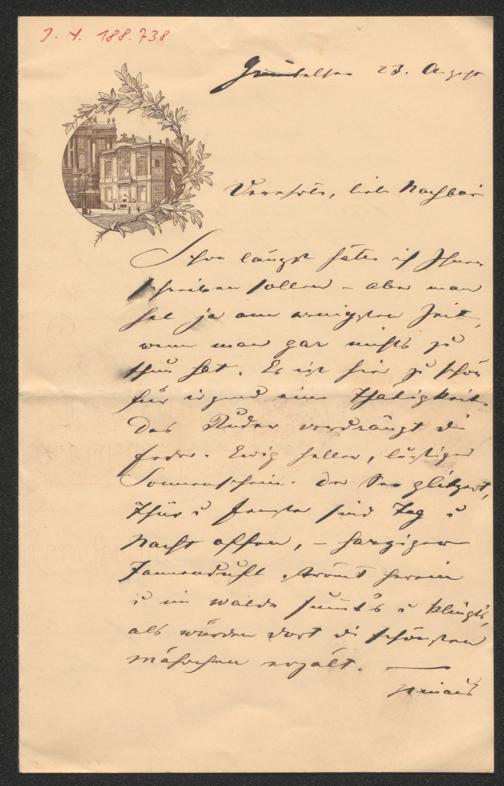 J. N. 188.738
Grundlsee 23. August
Verehrte, liebe Nachbarin
Schon längst hätte ich Ihnen
schreiben sollen – aber man
hat ja am wenigsten Zeit,
wenn man gar nichts zu
thun hat. Es ist hier zu schön
für irgend eine Thätigkeit.
Das Ruder verdrängt die
Feder. Ewig heller, lustiger
Sonnenschein. Der See glitzert,
Thür u Fenster sind Tag u
Nacht offen, – harziger
Tannenduft strömt herein
u im Walde summt's u klingt's,
als würden dort die schönsten
Mährchen erzält. —